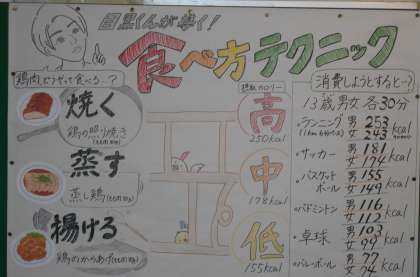 目黒くんが歩く!
食べ方テクニック
鶏肉どうやって食べる…?
焼く
鶏の照り焼き
蒸す
蒸し鶏
揚げる
鶏のからあげ
摂取カロリー
高
250kcal
中
178kcal
低
155kcal
消費しようとすると…?
13歳男女各30分
・ランニング
男 253 kcal
女 243 kcal
・サッカー
男 181 kcal
女 174 kcal
・バスケットボール
男 155 kcal
女 149 kcal
・バドミントン
男 116 kcal
女 112 kcal
・卓球
男 103 kcal
女 99 kcal
・バレーボール
男 77 kcal
女 74 kcal